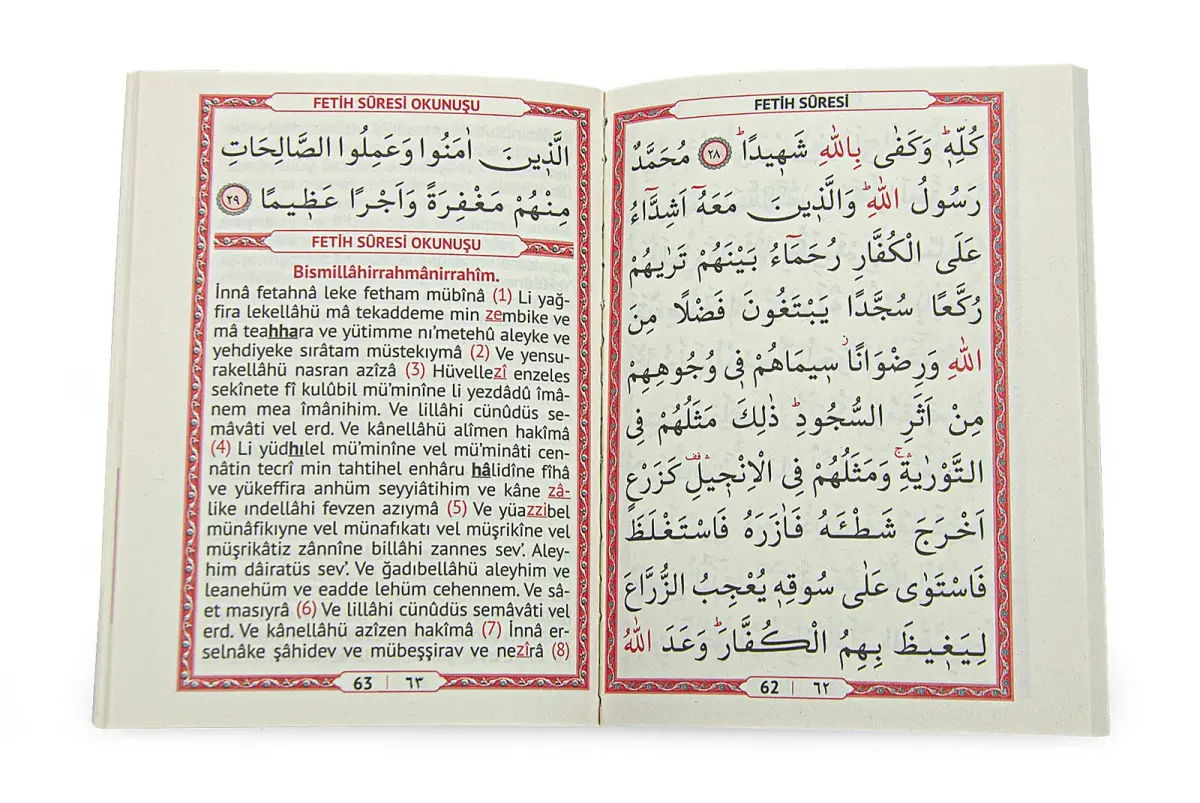 FETİH SÛRESİ
كُلِّهٖؕ وَكَفٰى بِاللّٰهِ شَهٖيدًاؕ ﴿٢٨﴾ مُحَمَّدٌ
رَسُولُ اللّٰهِؕ وَالَّذٖينَ مَعَهُٓ اَشِدَّٓاءُ
عَلَى الْكُفَّارِ رُحَمَٓاءُ بَيْنَهُمْ تَرٰيهُمْ
رُكَّعًا سُجَّدًا يَبْتَغُونَ فَضْلًا مِنَ
اللّٰهِ وَرِضْوَانًاؗ سٖيمَاهُمْ فٖى وُجُوهِهِمْ
مِنْ اَثَرِ السُّجُودِؕ ذٰلِكَ مَثَلُهُمْ فِى
التَّوْرٰيةِۚ وَمَثَلُهُمْ فِى الْاِنْجٖيلِۛ كَزَرْعٍ
اَخْرَجَ شَطْـَٔهُ فَاٰزَرَهُ فَاسْتَغْلَظَ
فَاسْتَوٰى عَلٰى سُوقِهٖ يُعْجِبُ الزُّرَّاعَ
لِيَغٖيظَ بِهِمُ الْكُفَّارَؕ وَعَدَ اللّٰهُ
62 | ٦٢
FETİH SÛRESİ OKUNUŞU
الَّذٖينَ اٰمَنُوا وَعَمِلُوا الصَّالِحَاتِ
مِنْهُمْ مَغْفِرَةً وَاَجْرًا عَظٖيمًا ﴿٢٩﴾
FETİH SÛRESİ OKUNUŞU
Bismillâhirrahmânirrahîm.
İnnâ fetahnâ leke fetham mübînâ (1) Li yağ-
fira lekellâhü mâ tekaddeme min zembike ve
mâ teahhara ve yütimme nı’metehû aleyke ve
yehdiyeke sırâtam müstekıymâ (2) Ve yensu-
rakellâhü nasran azîzâ (3) Hüvellezî enzeles
sekînete fî kulûbil mü’minîne li yezdâdû îmâ-
nem mea îmânihim. Ve lillâhi cünûdüs se-
mâvâti vel erd. Ve kânellâhü alîmen hakîmâ
(4) Li yüdhılel mü’minîne vel mü’minâti cen-
nâtin tecrî min tahtihel enhâru hâlidîne fîhâ
ve yükeffira anhüm seyyiâtihim ve kâne zâ-
like ındellâhi fevzen azıymâ (5) Ve yüazzibel
münâfikıyne vel münafıkatı vel müşrikîne vel
müşrikâtiz zânnîne billâhi zannes sev’. Aley-
him dâiratüs sev’. Ve ğadıbellâhü aleyhim ve
leanehüm ve eadde lehüm cehennem. Ve sâ-
et masıyrâ (6) Ve lillâhi cünûdüs semâvâti vel
erd. Ve kânellâhü azîzen hakîmâ (7) İnnâ er-
selnâke şâhidev ve mübeşşirav ve nezîrâ (8)
63 | ٦٣